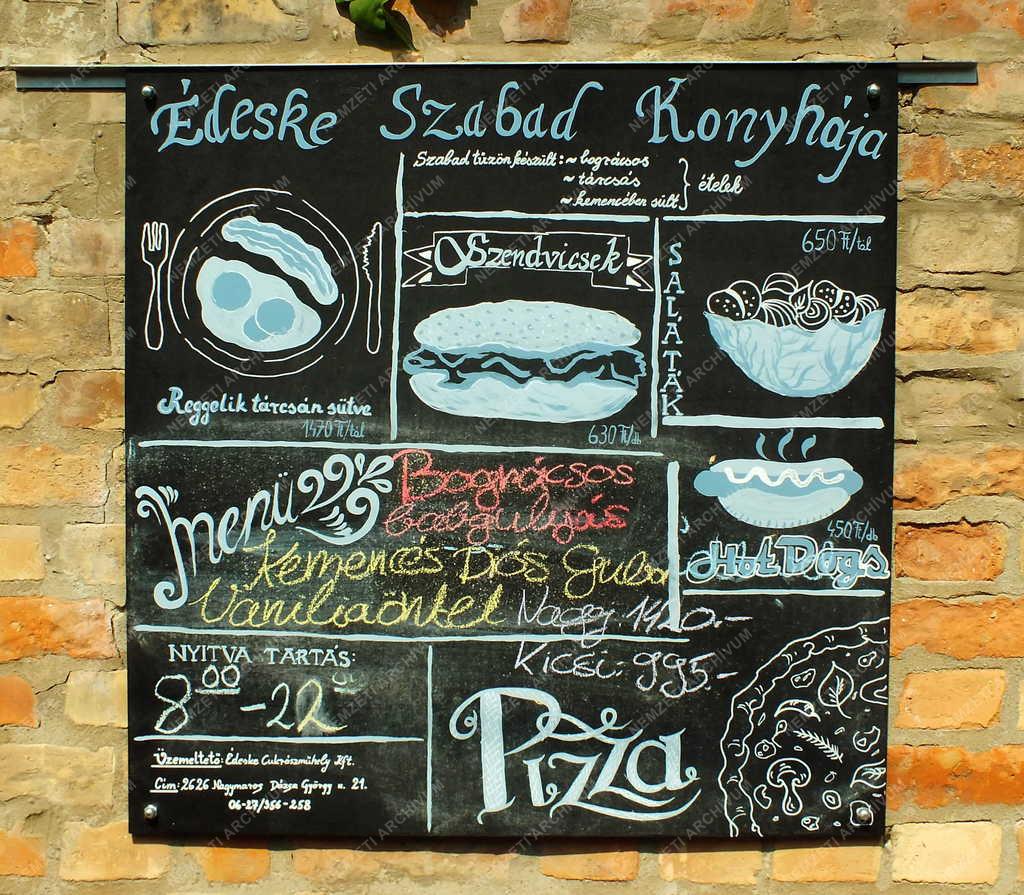 Édeske Szabad Konyhája
Szabad tűzön készült: ~ bográcsos
~ tárcsás
~ kemencében sült
ételek
Reggelik tárcsán sütve
1470 Ft/tál
Szendvicsek
630 Ft/db
SALÁTÁK
650 Ft/tál
Hot Dogs
450 Ft/db
Menü
Bográcsos
babgulyás
Kemencés Diós Guba
Vaníliaöntet
Nagy: 1420.-
Kicsi: 995.-
NYITVA TARTÁS:
8 00 - 22
Pizza
Üzemeltető: Édeske Cukrászműhely Kft.
Cím: 2626 Nagymaros Dózsa György u. 21.
06-27/356-258
NEMZETI ARCHÍVUM